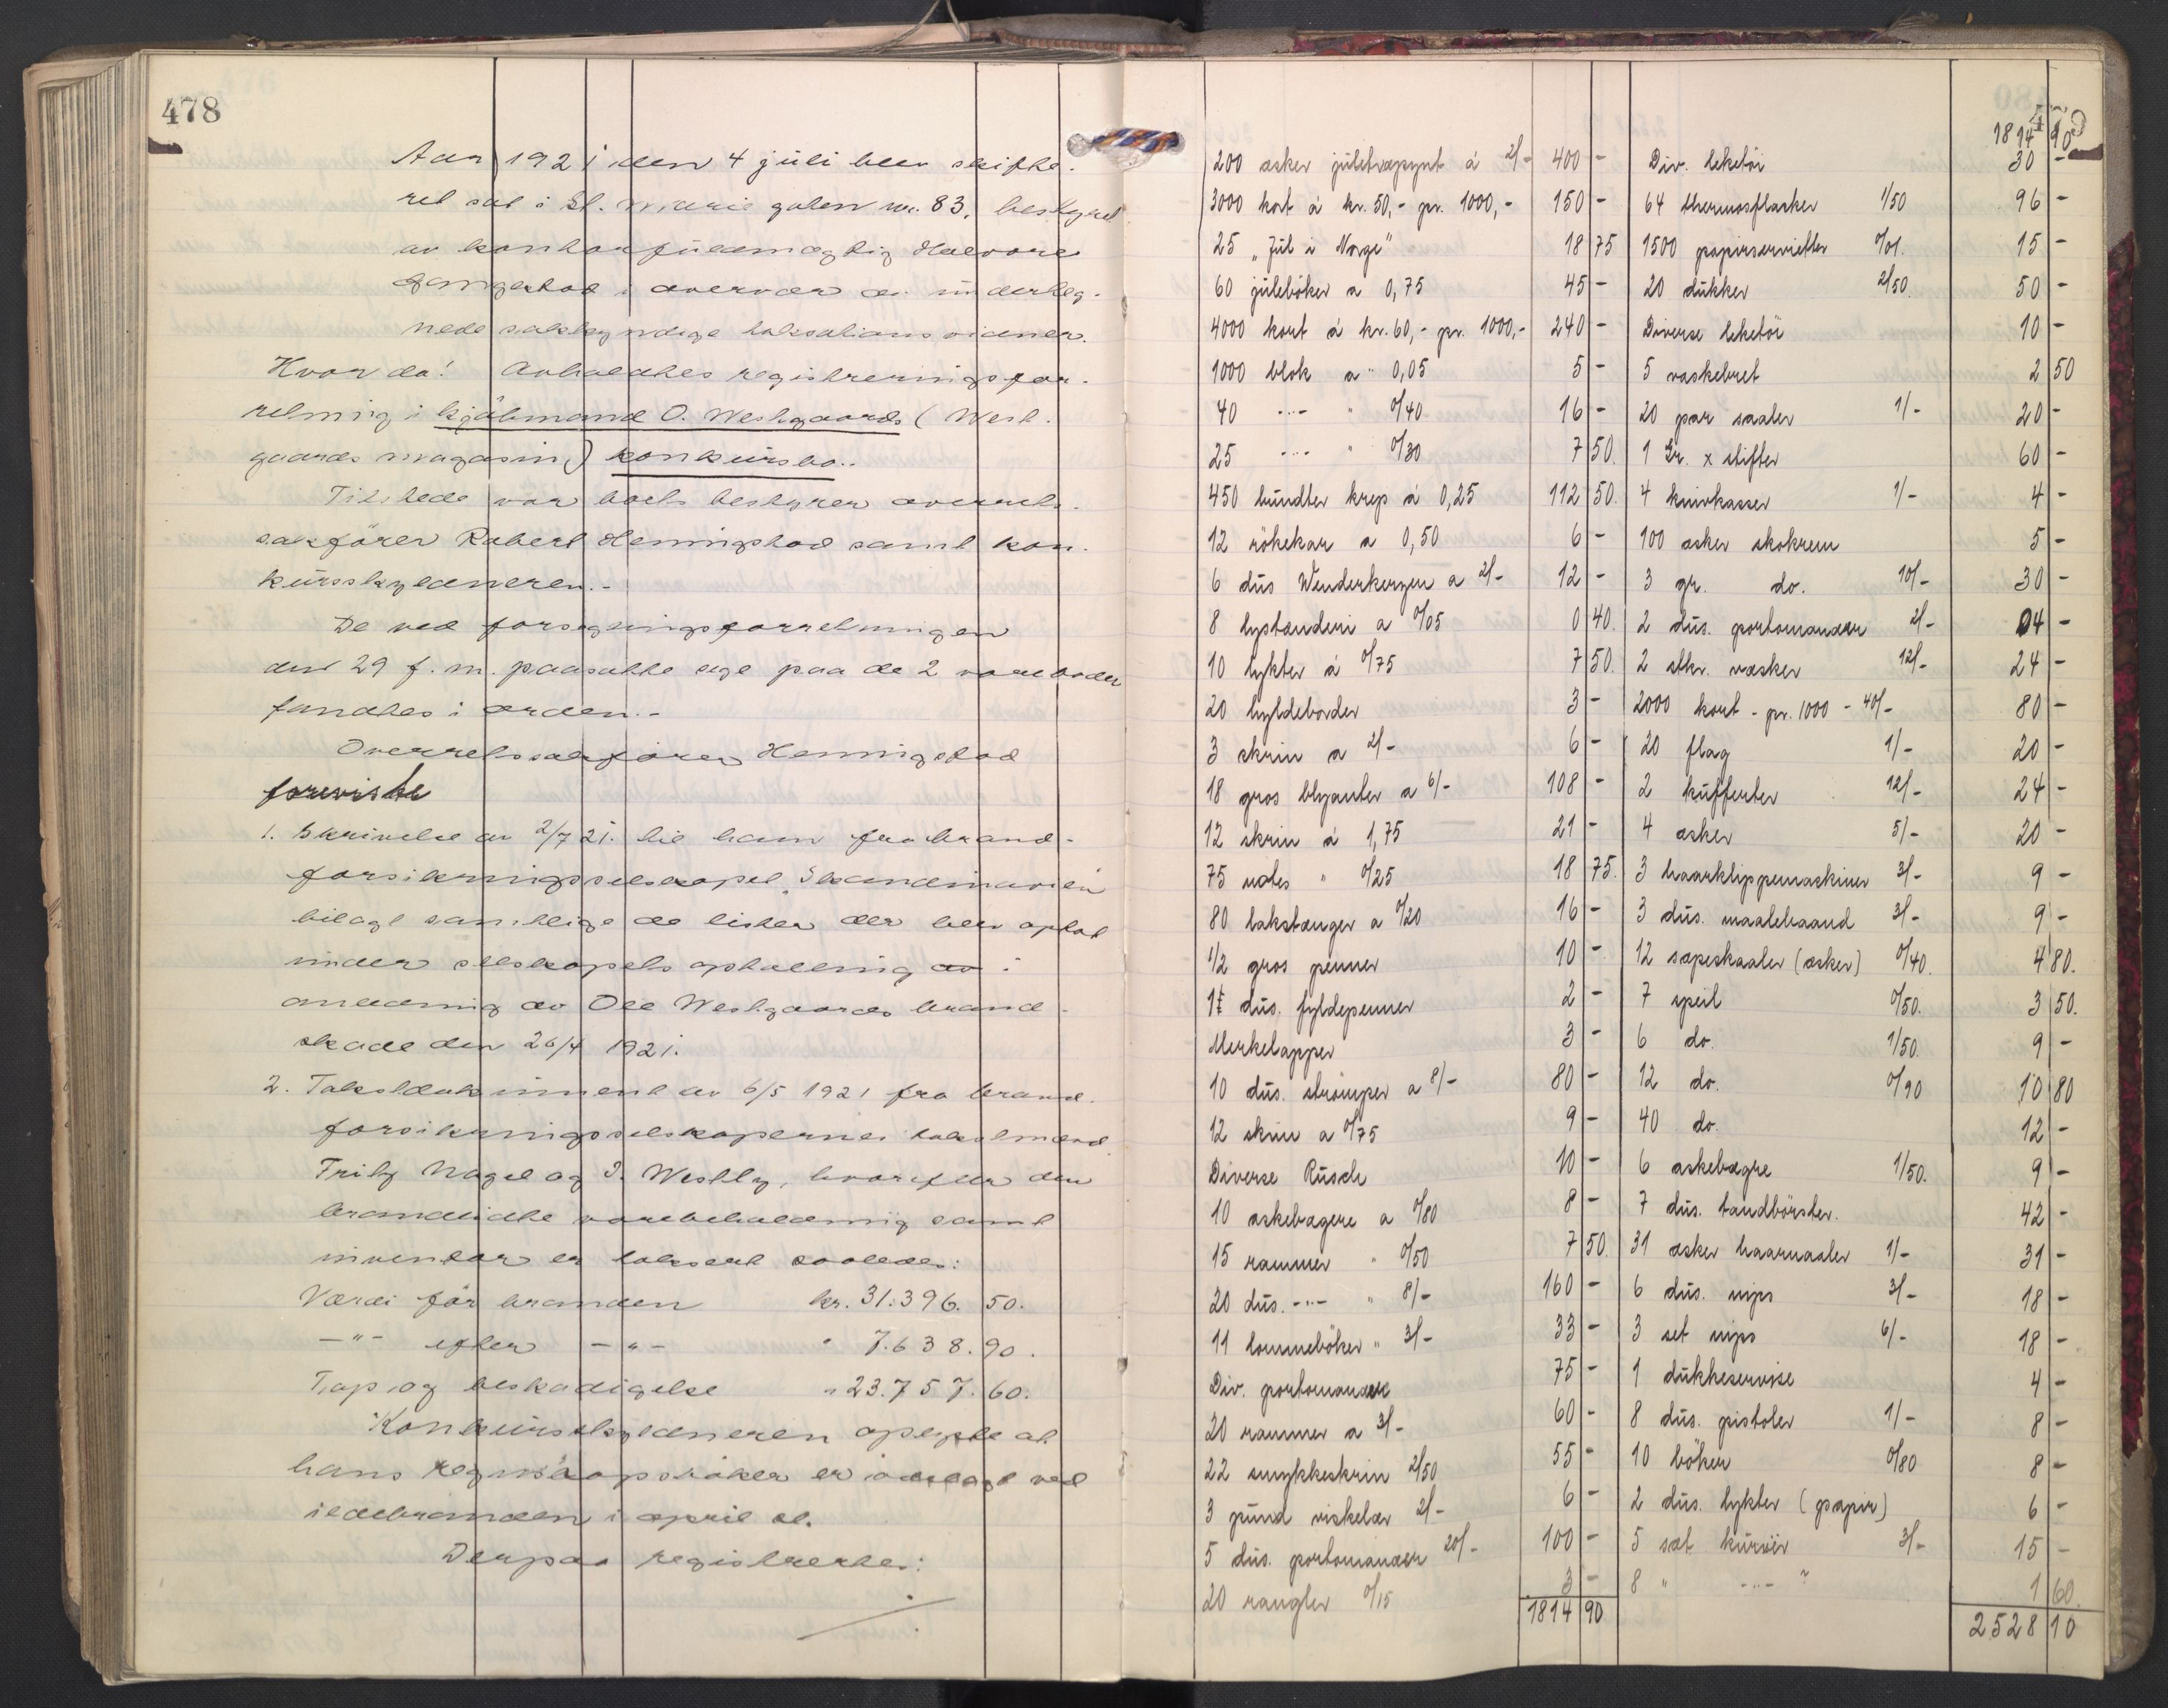 478
Aar 1921 den 4 juli blev skifte-
ret sat i St. Marie gaten nr. 83, bestyret
av kontorfuldmægtig Halvore
i overvær av underteg-
nede sakkyndige taksations vidner.
Hvorda: Avholdtes registreringsfor-
retning i kjöbmand O. Westgaards (West-
gaards magasin) konkursbo..
Tilstede var boets bestyrer overrets-
sakförer Robert Henningstad samt kon-
kursskyldneren.-
De ved forseglingsforretningen
den 29 f. m. paasatte segl paa de 2 vareboder
fandtes i orden.-
Overretssakförer Henningstad
foreviste
1. Skrivelse av 2/7 21. til ham fra brand-
forsikringsselskapet "Skandinavien"
bilagt samtlige de lister der blev optat
under selskapets optælling av i
anledning av Ole Westgaards brand-
skade den 26/4 1921.
2. Takstdokument av 6/5 1921 fra brand-
forsikringsselskapernes takstmænd
Fritz Nagel og I. Westly, hvorefter den
brandlidte varebeholdning samt
inventar er taksert saaledes:
Værdi för branden kr. 31.396. 50.
-"- efter -"- " 7.638. 90.
Tap og beskadigelse " 23.757. 60.
Konkursskyldneren oplyste at
hans regnskapsböker er ödelagt ved
ildebranden i april sl.
Derpaa registrertes:
479
200 æsker juletræpynt á 2/- 400 -
3000 kort á kr. 50,- pr. 1000,- 150 -
25 „Jul i Norge" 18 75
60 juleböker a 0,75 45 -
4000 kort á kr. 60,- pr. 1000,- 240 -
1000 blok a " 0,05 5 -
40 -"- " 0/40 16 -
25 -"- " 0/30 7 50.
450 bundter krep á 0,25 112 50.
12 rökekar a 0,50 6 -
6 dus Wunderkerzen a 2/- 12 -
8 lystenderi a 0/05 0 40.
10 lykter á 0/75 7 50.
20 hyldeborder 3 -
3 skrin a 2/- 6 -
18 gros blyanter a 6/- 108 -
12 skrin á 1,75 21 -
75 notes " 0/25 18 75.
80 lakstænger a 0/20 16 -
1/2 gros penner 10 -
1 dus. fyldepenner 2 -
Merkelapper 3 -
10 dus. strömper a 8/- 80 -
12 skrin a 0/75 9 -
Diverse Rusch 10 -
10 askebægere a 0/80 8 -
15 rammer " 0/50 7 50.
20 dus. -"- " 8/- 160 -
11 lommeböker " 3/- 33 -
Div. portomonæer 75 -
20 rammer a 3/- 60 -
22 smykkeskrin 2/50 55 -
3 pund viskelær 2/- 6 -
5 dus. portomonæer 20/- 100 -
20 rangler 0/15 3 -
1814 90
1814 90
Div. leketöi 30 -
64 thermosflasker 1/50 96 -
1500 papirservietter 0/01. 15 -
20 dukker 2/50. 50 -
Diverse leketöi 10 -
5 vaskebret 2 50
20 par saaler 1/- 20 -
1 Gr. x stifter 60 -
4 knivkasser 1/- 4 -
100 æsker skokrem 5 -
3 gr. do. 10/- 30 -
2 dus. portomonæer 2/- 4 -
2 stkr. væsker 12/- 24 -
2000 kort - pr. 1000 - 40/- 80 -
20 flag 1/- 20 -
2 kufferter 12/- 24 -
4 æsker 5/- 20 -
3 haarklippemaskiner 3/- 9 -
3 dus. maalebaand 3/- 9 -
12 sæpeskaaler (æsker) 0/40. 4 80.
7 speil 0/50. 3 50.
6 do. 1/50. 9 -
12 do. 0/90 10 80
40 do. 12 -
6 askebægre 1/50. 9 -
7 dus. tandbörster. 42 -
31 æsker haarnaaler 1/- 31 -
6 dus. nips 3/- 18 -
3 set nips 6/- 18 -
1 dukkeservise 4 -
8 dus. pistoler 1/- 8 -
10 böker 0/80 8 -
2 dus. lykter (papir) 6 -
5 sæt kurver 3/- 15 -
8 " -"- 1 60.
2528 10